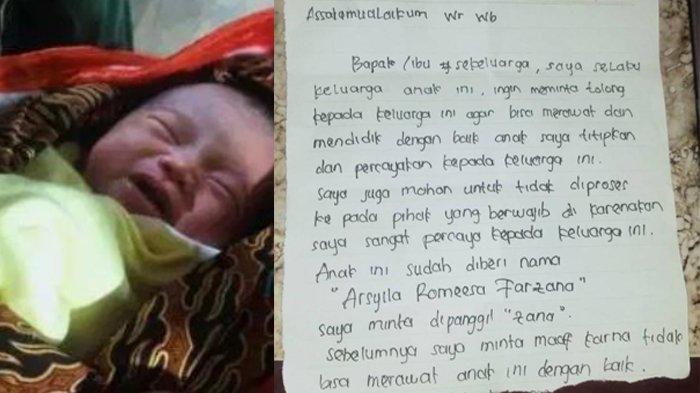 Assalamualaikum Wr Wb
Bapak / Ibu # sekeluarga, saya selaku
keluarga anak ini, ingin meminta tolong
kepada keluarga ini agar bisa merawat dan
mendidik dengan baik anak saya titipkan
dan percayakan kepada keluarga ini.
Saya juga mohon untuk tidak diproses
ke pada pihak yang berwajib di karenakan
saya sangat percaya kepada keluarga ini.
Anak ini sudah diberi nama
"Arsyila Romeesa Farzana"
saya minta dipanggil "zana".
sebelumnya saya minta maaf karna tidak
bisa merawat anak ini dengan baik.